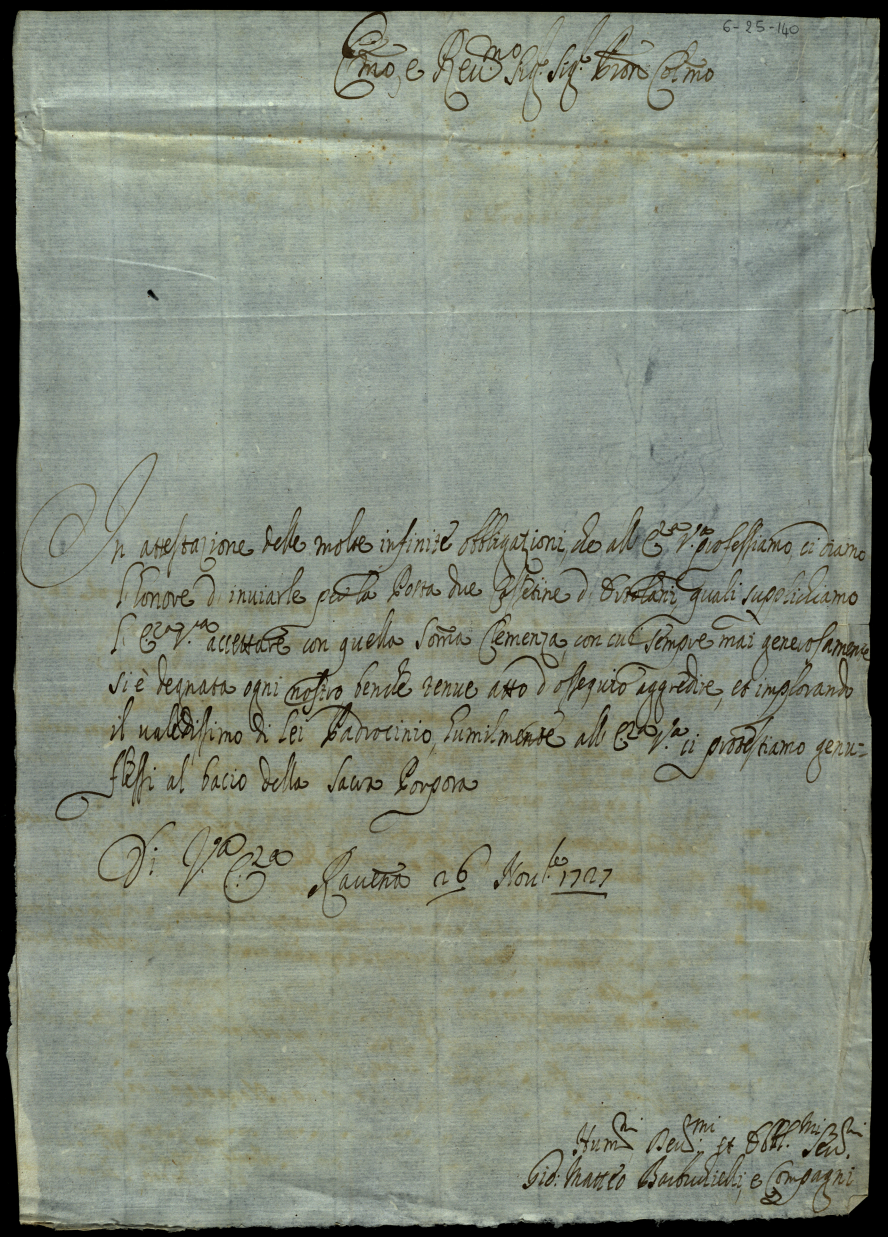 6-25-140
E.mo, e Reu.mo Sig.r Sig.r Pron Col.mo
In attestazione delle molte infinite obbligazioni, che all E.za V.ra professiamo, ci diamo
l'honore d'inuiarle per la Posta due Casettine d'Ortolani, quali supplichiamo
l'E.za V.ra accettare con quella somma Clemenza, con cui sempre mai generosamente
si è degnata ogni nostro benche tenue atto d'ossequio aggredire, et implorando
il ualidissimo di Lei Padrocinio, humilmente all E.za V.ra ci protestiamo genu=
flessi al bacio della Sacra Porpora
Di V.ra E.za Rauenna 26 Nou.bre 1727
Hum.mi Deu.mi et Obbl.mi Seru.ri
Gio: Matteo Barbi, e Compagni